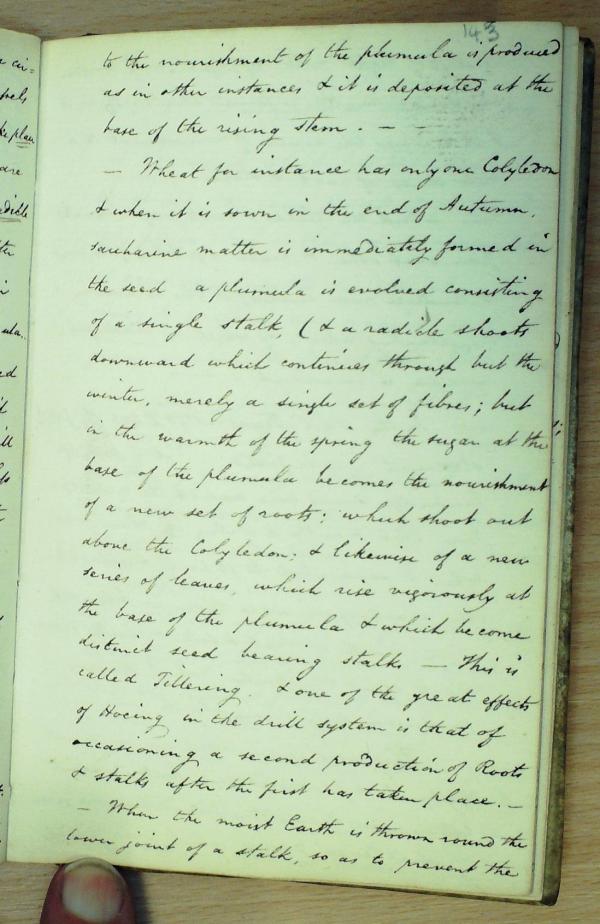 143
to the nourishment of the plumula is produced
as in other instances & it is deposited at the
base of the rising stem. — —
— Wheat for instance has only one Cotyledon
& when it is sown in the end of Autumn,
saccharine matter is immediately formed in
the seed a plumula is evolved consisting
of a single stalk, (& a radicle shoots
downward which continues through but the
winter, merely a single set of fibres; but
in the warmth of the spring the sugar at the
base of the plumula becomes the nourishment
of a new set of roots; which shoot out
above the Cotyledon; & likewise of a new
series of leaves, which rise vigorously at
the base of the plumula & which become
distinct seed bearing stalks — This is
called Tillering. & one of the great effects
of Hoeing in the drill system is that of
occasioning a second production of Roots
& stalks after the first has taken place. —
— When the moist Earth is thrown round the
lower joint of a stalk, so as to prevent the